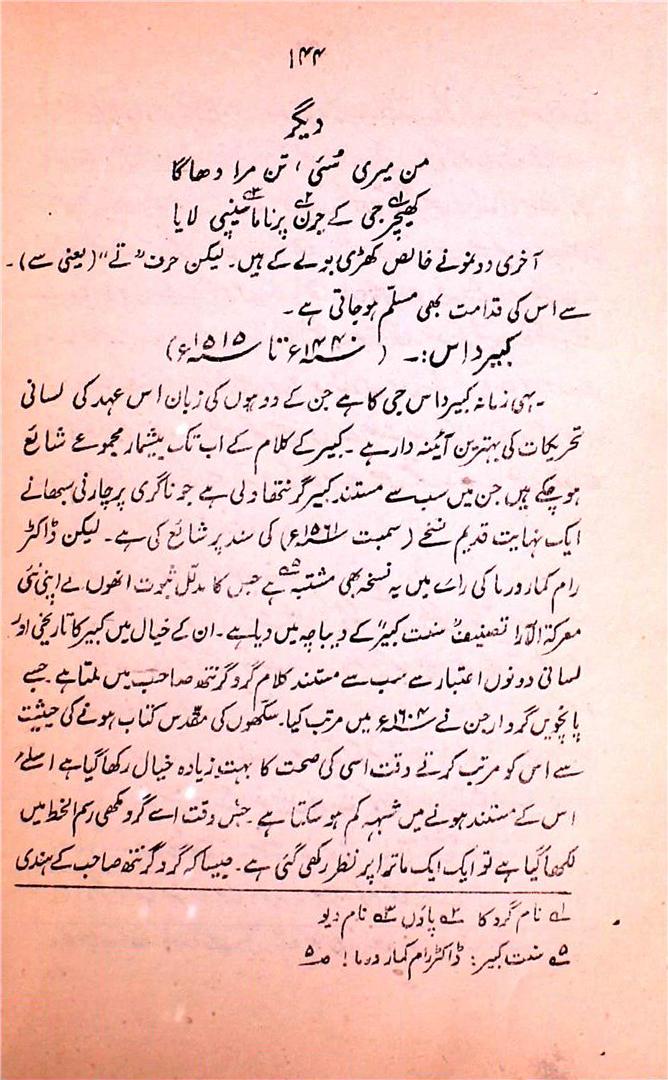 ۱۴۴
دیگر
من میری سُئی ، تن مرا دھاگا
کھیچر؎۱ جی کے چرن؎۲ پر ناما؎۳ سینپی لایا
آخری دو نمونے خالص کھڑی بولی کے ہیں۔ لیکن حرف "تے" (یعنی سے)۔
سے اس کی قدامت بھی مسلّم ہوجاتی ہے ۔
کبیر داس :۔ ( ۱۴۴۰ء تا ۱۵۱۵ء)
یہی زمانہ کبیر داس جی کا ہے جن کے دوہوں کی زبان اس عہد کی لسانی
تحریکات کی بہترین آئینہ دار ہے ۔ کبیر کے کلام کے اب تک بیشمار مجموعے شائع
ہوچکے ہیں جن میں سب سے مستند کبیر گرنتھاولی ہے جو ناگری پرچارنی سبھا نے
ایک نہایت قدیم نسخے ( سمبت ۱۵۶۱ء) کی سند پر شائع کی ہے ۔ لیکن ڈاکٹر
رام کمار ورما کی رائے میں یہ نسخہ بھی مشتبہ؎۵ ہے جس کا مدلّل ثبوت انھوں نے اپنی نئی
معرکۃ الآرا تصنیف "سنت کبیر" کے دیباچہ میں دیا ہے ۔ ان کے خیال میں کبیر کا تاریخی اور
لسانی دونوں اعتبار سے سب سے مستند کلام گرو گرنتھ صاحب میں ملتا ہے ۔ جسے
پانچویں گرو ارجن نے ۱۶۰۴ء میں مرتب کیا ۔ سکھوں کی مقدّس کتاب ہونے کی حیثیت
سے اس کو مرتب کرتے وقت اسی کی صحت کا بہت زیادہ خیال رکھا گیا ہے اسلئے
اس کے مستند ہونے میں شبہہ کم ہو سکتا ہے ۔ جس وقت اسے گرومکھی رسم الخط میں
لکھا گیا ہے تو ایک ایک ماترا پر نظر رکھی گئی ہے ۔ جیسا کہ گرو گرنتھ صاحب کے ہندی
؎۱ نام گرو کا ؎۲ پاؤں ؎۳ نام دیو
؎۵ سنت کبیر : ڈاکٹر رام کمار ورما ! ص۵